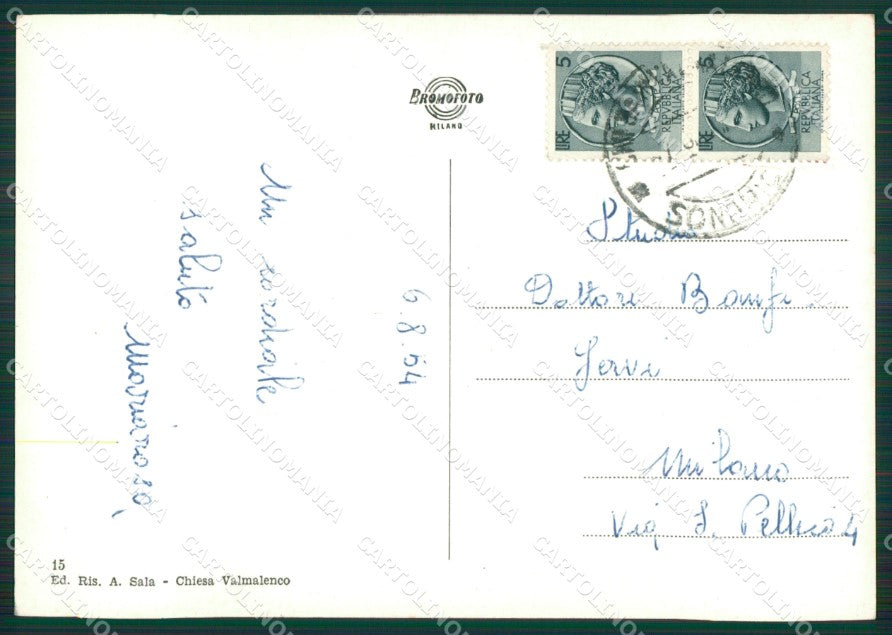 BROMOFOTO
MILANO
5
LIRE
REPVBBLICA
ITALIANA
5
LIRE
REPVBBLICA
ITALIANA
SONDRIO
Un cordiale
saluto
Mariarosa
6.8.64
Studio
Dottori Banfi
Servi
Milano
Via S. Pellico 4
15
Ed. Ris. A. Sala - Chiesa Valmalenco
CARTOLINOMANIA